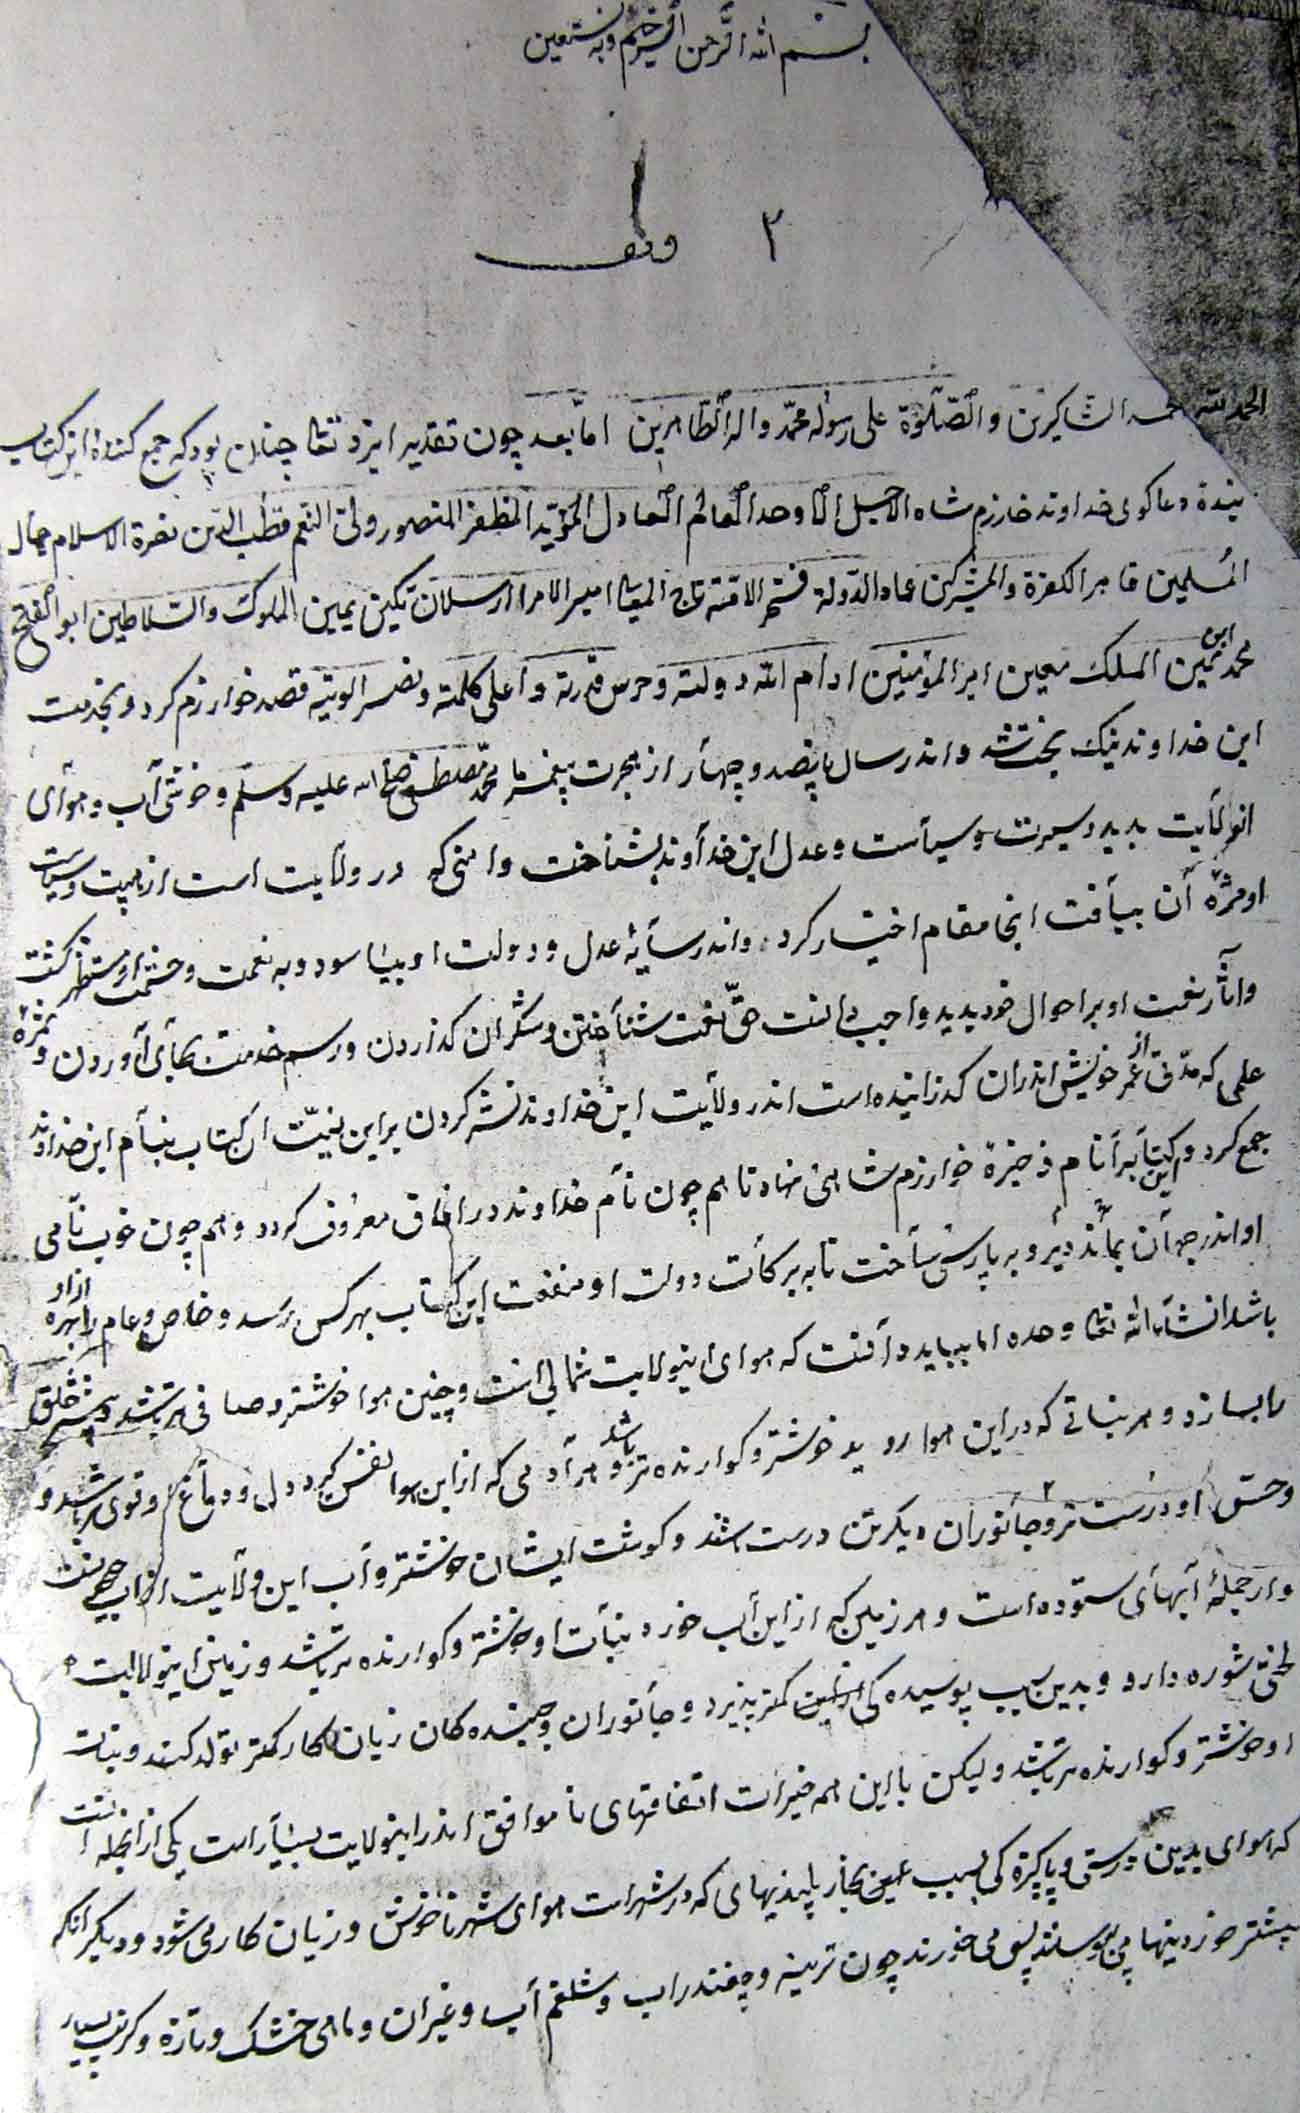 بسم الله الرحمن الرحیم وبه نستعین
۲ وقف
الحمد لله حمد الشاکرین والصلوة علی رسوله محمد واله الطاهرین اما بعد چون تقدیر ایزد تعالی چنان بود که جمع کنندۀ این کتاب
بندۀ دعاکوی خداوند خوارزم شاه الاجل الاوحد العالم العادل المؤید المظفر المنصور ولی النعم قطب الدین نصرة الاسلام جمال
المسلمین قاهر الکفرة والمشرکین عماد الدولة فخر الامة تاج المعالی امیر الامرا ارسلان تکین یمین الملوک والسلاطین ابو الفتح
محمد ابن یمین الملک معین امیر المؤمنین ادام الله دولته وحرس قدرته واعلی کلمته ونصر الویته قصد خوارزم کرد وبخدمت
این خداوند نیک بخت شد واندر سال پانصد وچهار از هجرت پیغمبر ما محمد مصطفی صلی الله علیه وسلم وخوشی آب وهوای
انولایت بدید وسیرت وسیاست وعدل این خداوند بشناخت وامنی که در ولایت است از هیبت وسیاست
او ومژۀ آن بیافت انجا مقام اختیار کرد واندر سایۀ عدل ودولت او بیاسود وبه نعمت وحشمت او مستظهر کشت
واثار نعمت او بر احوال خود بدید واجب دانست حق نعمت شناختن وشکر ان کذاردن ورسم خدمت بجای آوردن وثمرۀ
علمی که مدتی از عمر خویش اندران کذرانیده است اندر ولایت این خداوند نشر کردن براین نیت ان کتاب بنام این خداوند
جمع کرد واین کتاب را نام ذخیرۀ خوارزم شاهی نهاد تا هم چون نام خداوند در افاق معروف کردد وهم چون خوب نامی
او اندر جهان بماند دیر وبه پارسی ساخت تا به برکات دولت او منفعت این کتاب بهر کس برسد وخاص وعام را از او بهره
باشد انشاء الله تعالی وحده اما بباید دانست که هوای اینولایت شمالی است وچنین هوا خوشتر وصافی تر باشد وبیشتر خلق
را بسازد وهر نباتی که دراین هوا روید خوشتر وکوارنده تر باشد وهر آدمی که ازاین هوا نفس کیرد دل ودماغ او قوی تر باشد و
وحس او درست تر وجانوران دیکر تن درست باشند وکوشت ایشان خوشتر وآب این ولایت از آب جیحونست
واز جملۀ آبهای ستوده است وهر زمین که ازاین آب خورد نبات او خوشتر وکوارنده تر باشد وزمین اینولایت
لختی شوره دارد وبدین سبب پوسیده کی این زمین کمتر پذیرد وجانوران وجمنده کان زیان کار کمتر تولد کنند ونبات
او خوشتر وکوارنده تر باشد ولیکن با این همه خیرات اتفاقهای نا موافق اندر اینولایت بسیار است یکی از انجمله انست
که هوای بدین درستی وپاکیزه کی بسبب عفن بخار پلیدیهای که در شهر است هوای شهر ناخوش وزیان کار می شود ودیکر انکه
بیشتر خوردنیها می پوسند پس می خورند چون ترینه وچغندر اب وشلغم آب وغیران وماهی خشک وتازه وکرنب بسیار